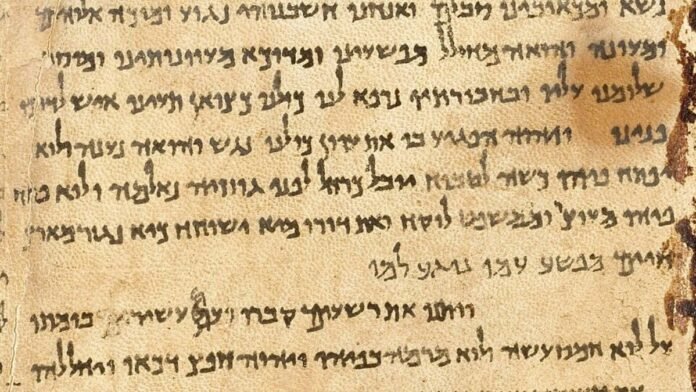 נשא ומכאובינו ואנחנו חשבנוהו נגוע ומוכה
ומעונה והואה מחולל מפשעינו ומדוכא מעוונותינו
שלומנו עליו ובחבורתיו נרפא לנו כולנו כצואן תעינו איש
פנינו ויהוה הפגיע בו את עוון כולנו נגש והואה נענה ולוא
יפתח פיהו כשה לטבוח יובל כרחל לפני גוזזיה נאלמה ולוא
פיהו מעוצר וממשפט לוקח ואת דורו מיא ישוחח כיא נגזר מארץ
חיים מפשע עמו נוגע למו
ויתנו את רשעים קברו ועם בומתו
על לוא חמס עשה ולוא מרמה בפיהו ויהוה חפץ דכאו ויחללהו